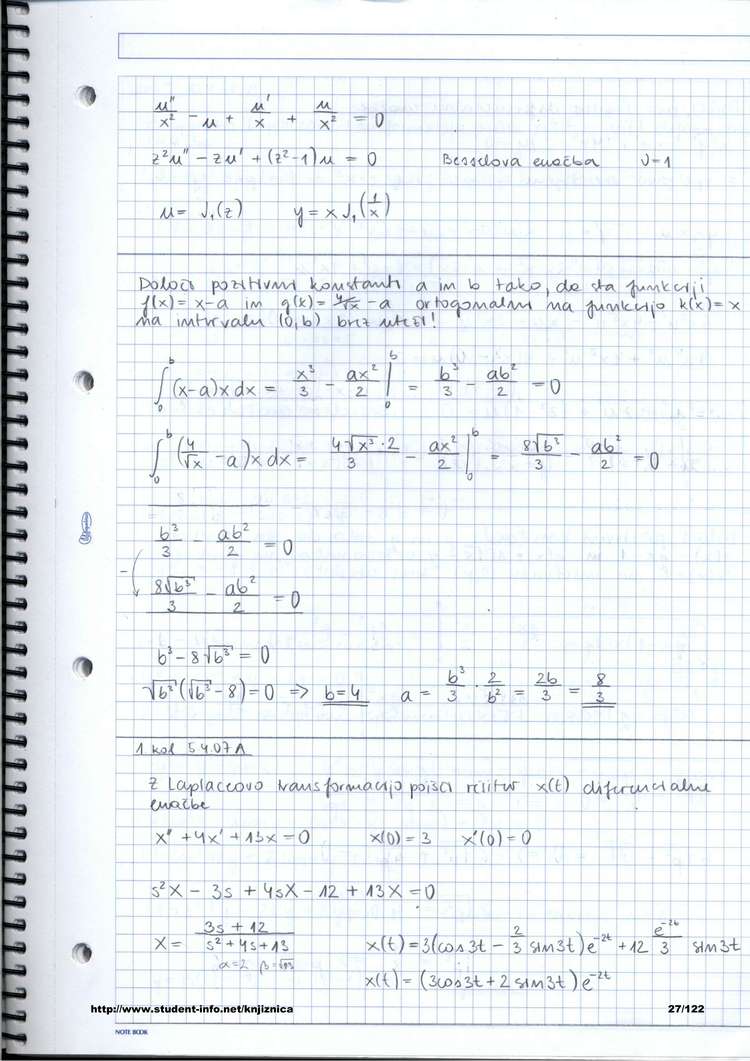 u''/x² - u + u'/x + u/x² = 0
z²u'' - zu' + (z²-1)u = 0 Besselova enačba ν=1
u = J₁(z) y = x J₁(1/x)
Določi pozitivni konstanti a in b tako, da sta funkciji
f(x) = x-a in g(x) = 4/√x - a ortogonalni na funkcijo k(x) = x
na intervalu (0,b) brez uteži!
∫₀ᵇ (x-a)x dx = x³/3 - ax²/2 |₀ᵇ = b³/3 - ab²/2 = 0
∫₀ᵇ (4/√x - a)x dx = 4√x³·2/3 - ax²/2 |₀ᵇ = 8√b³/3 - ab²/2 = 0
b³/3 - ab²/2 = 0
- 8√b³/3 - ab²/2 = 0
b³ - 8√b³ = 0
√b³(√b³ - 8) = 0 => b = 4 a = b³/3 · 2/b² = 2b/3 = 8/3
1 kol 5 4.07 A
Z Laplaceovo transformacijo poišči rešitev x(t) diferencialne
enačbe
x'' + 4x' + 13x = 0 x(0) = 3 x'(0) = 0
s²X - 3s + 4sX - 12 + 13X = 0
X = 3s + 12 / s² + 4s + 13 x(t) = 3(cos3t - 2/3 sin3t)e^-2t + 12 e^-2t/3 sin3t
α=2 β=√13 x(t) = (3cos3t + 2 sin3t)e^-2t
http://www.student-info.net/knjiznica 27/122
NOTE BOOK